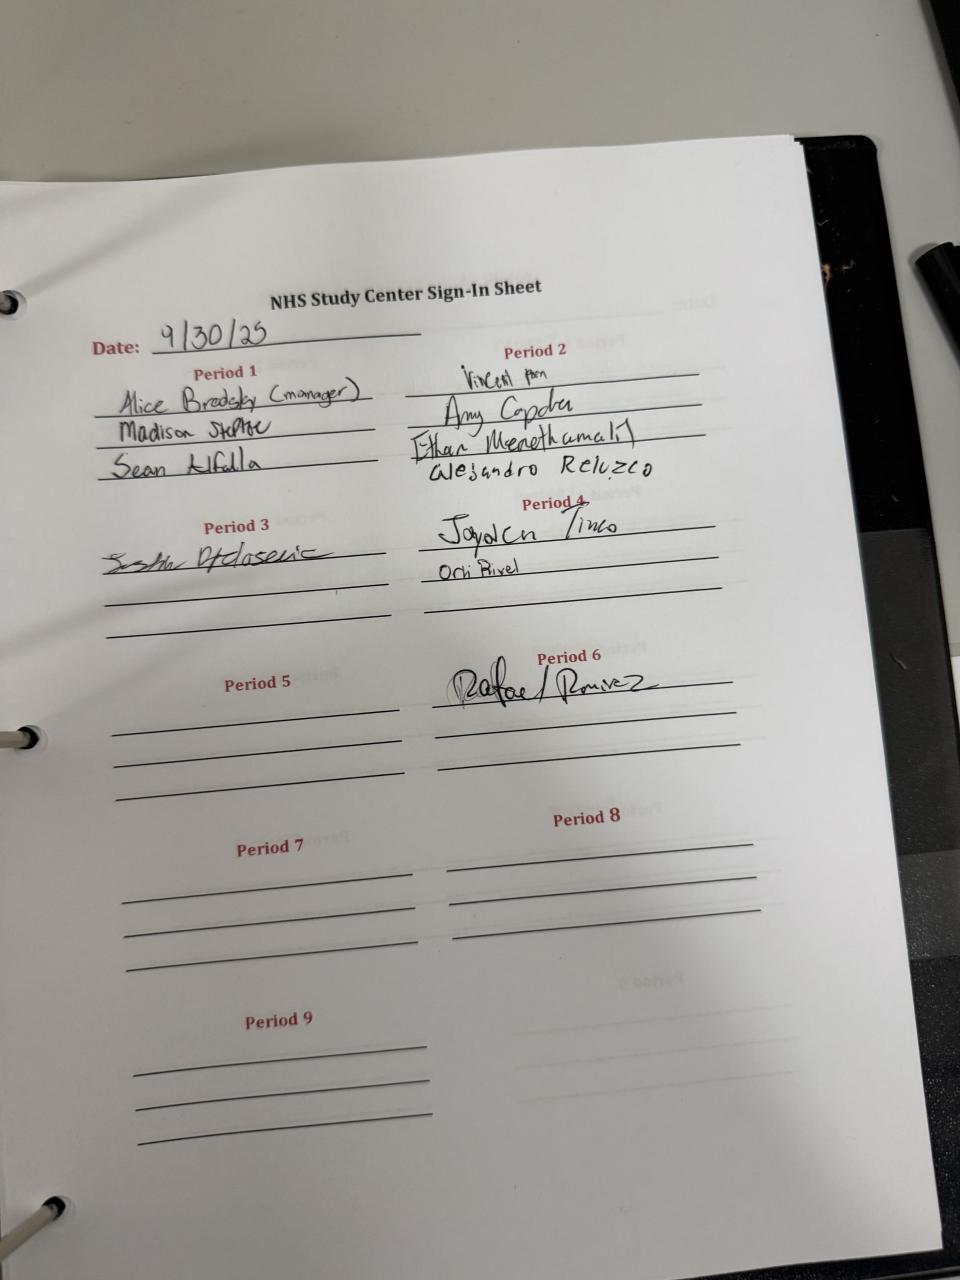 NHS Study Center Sign-In Sheet
Date: 9/30/25
Period 1
Alice Brodsky (manager)
Madison
Sean Alfalla
Period 2
Vincent
Amy
Ethan
Alejandro Reluzco
Period 3
Period 4
Jayden Tinco
Period 5
Period 6
Rafael Ramirez
Period 7
Period 8
Period 9